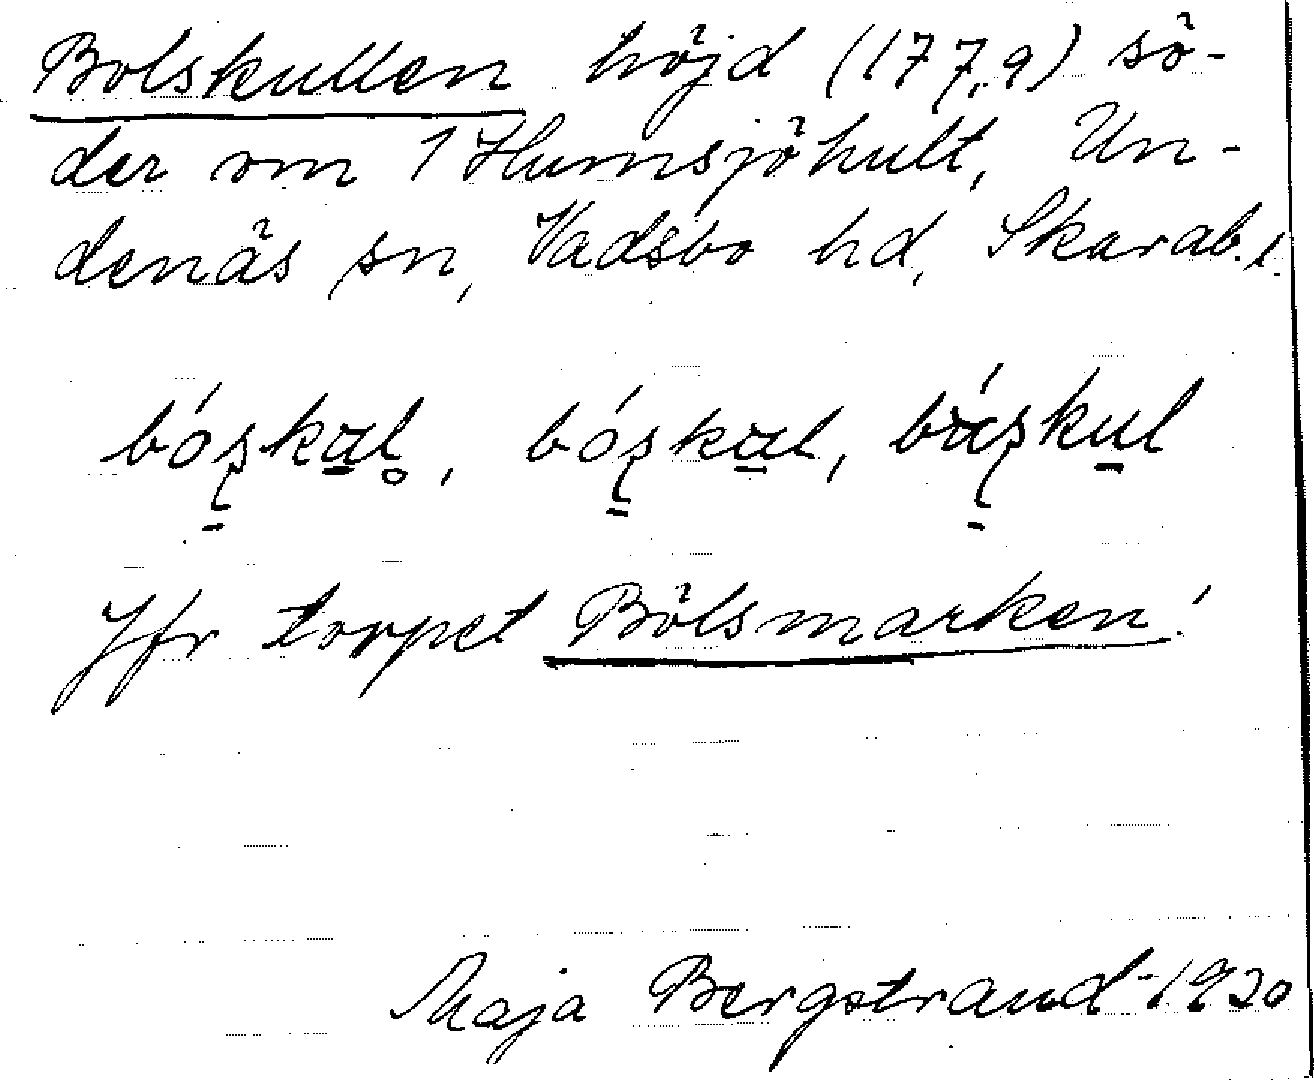 Bolskullen höjd (177,9) sö-
der om 1 Humsjöhult, Un-
denäs sn, Vadsbo hd, Skarab. l.
Jfr torpet Bölsmarken!
Maja Bergstrand 1920